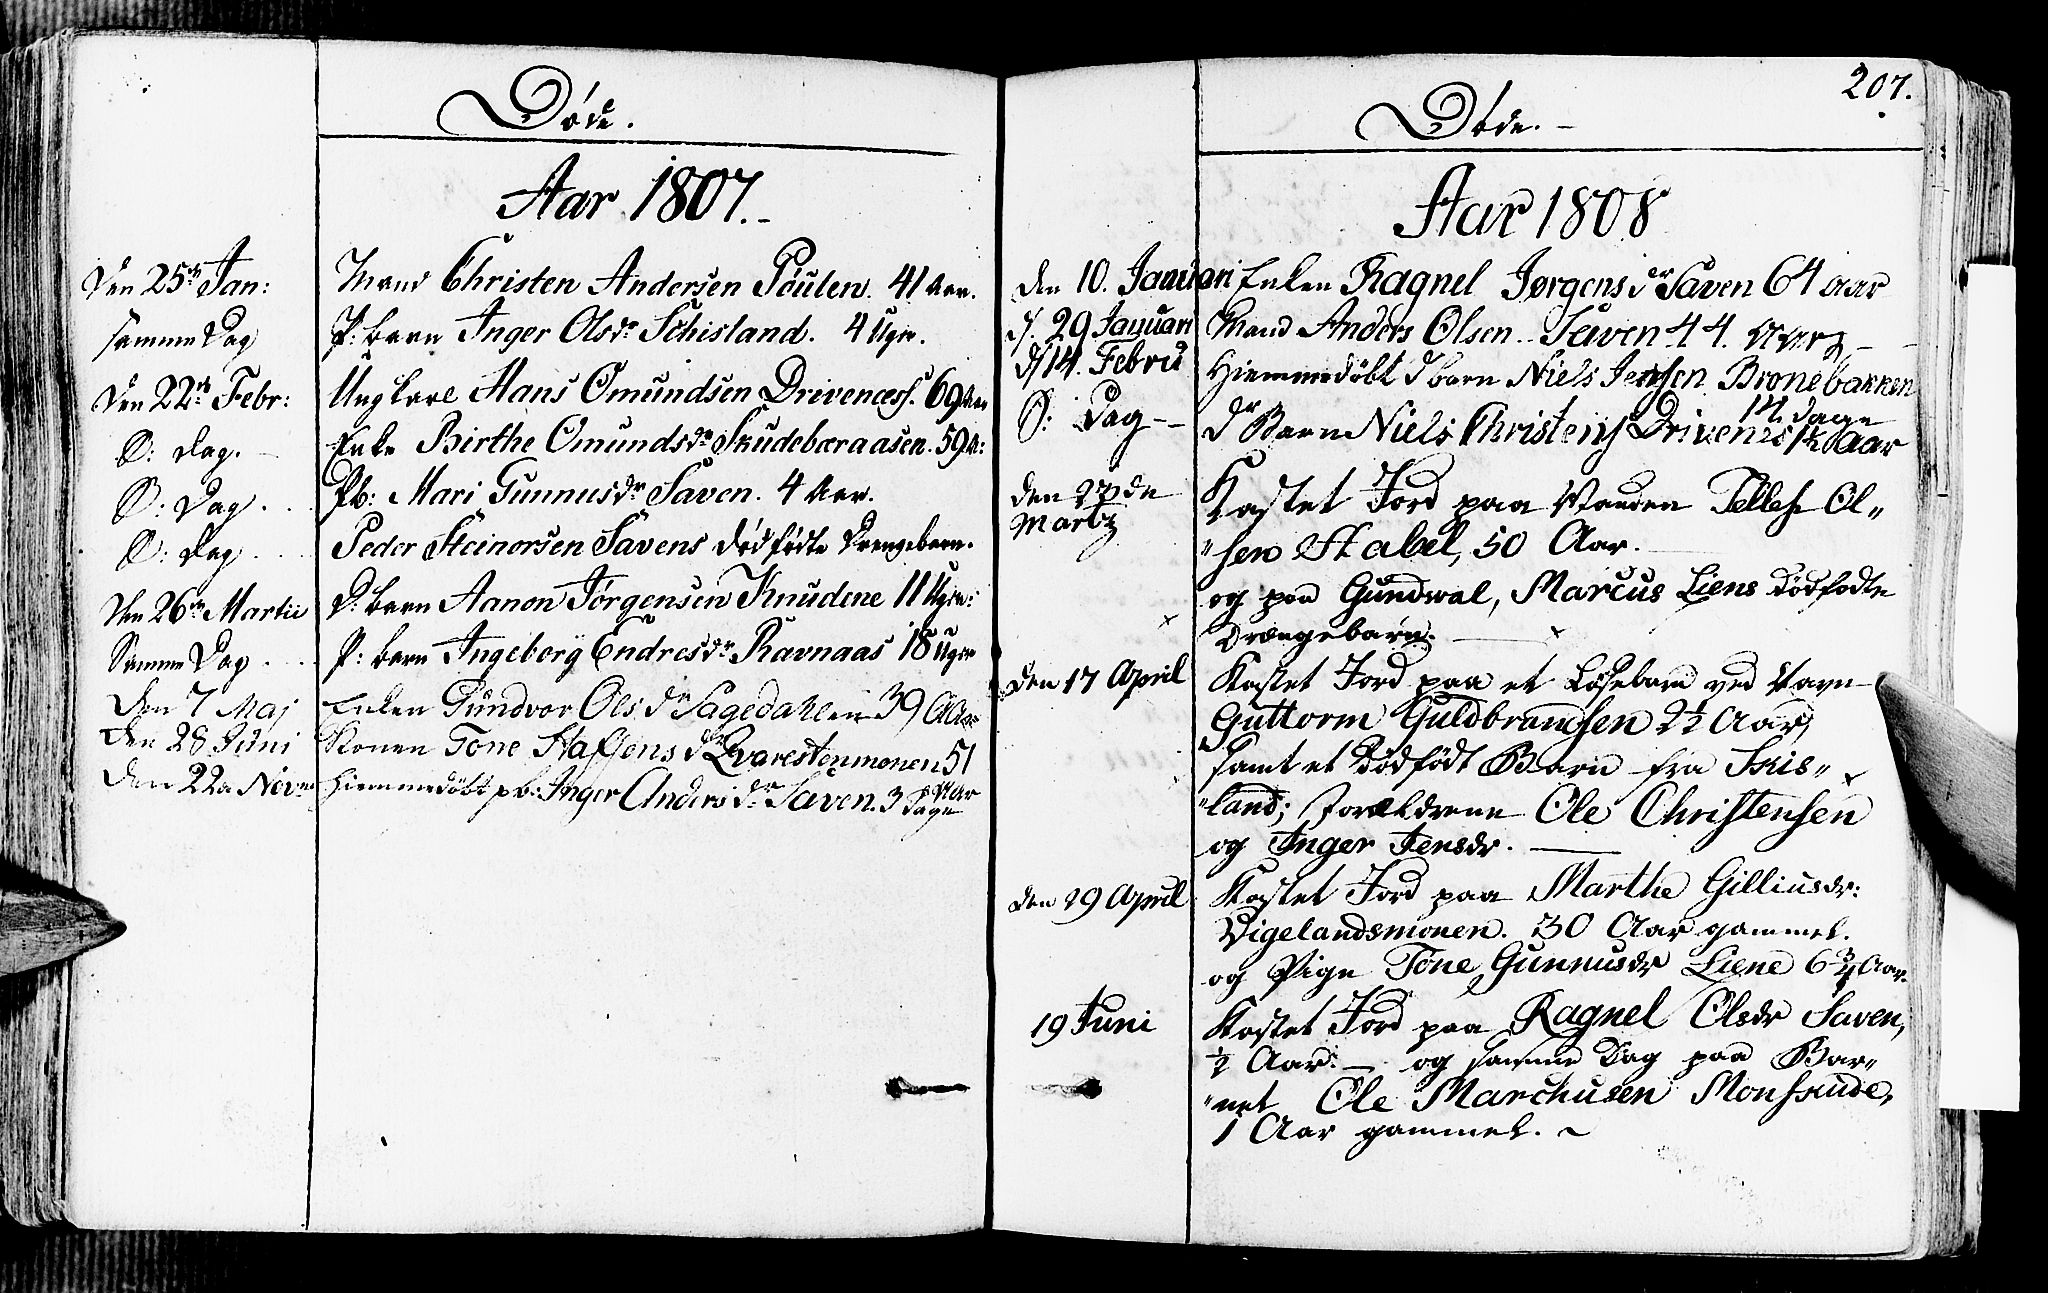 Døde.
Aar 1807.
Den 25de Jan: Mand Christen Andersen Poulen. 41 Aar.
samme Dag P: barn Inger Olsdr Schisland. 4 Uger.
Den 22de Febr: Ungkarl Hans Omundsen Drivenæss. 69 Aar
D: Dag. Enke Birthe Omundsdr Skudebæraasen. 59 A:
D: Dag. Pb: Mari Gunnusdr Saven. 4 Aar.
D: Dag Peder Steinorsen Savens dødfødte Drengebarn.
Den 26de Martii D: barn Aanon Jørgensen Knudene 11 Uger:
Samme Dag P: barn Ingeborg Endresdr Ravnaas 18 Uger
Den 7 Maj Enken Gundvor Olsdr Sagedahlen 39 Aar
Den 28 Juni Konen Tone Staffensdr Qvarestenmonen 51 Aar
Den 22de Novr Hiemmedøbt pb: Inger Andersdr Saven. 3 Dage
207.
Døde.
Aar 1808
Den 10. Januari Enken Ragnel Jørgensdr Saven 64 aar
d. 29 Januari Mand Anders Olsen Saven 44. Aar
d 14. Febru Hiemmedøbt d barn Niels Jensen Bronebakken
14 dage
D: Dag dr Barn Niels Christens Drivenes 1½ Aar
Den 27de Kastet Jord paa Manden Tellef Ol„
Martz „sen Stabel, 50 Aar.
og paa Gundwal, Marcus Liens dødfødte
Drængebarn.
Den 17 April Kastet Jord paa et Løsebarn ved Navn
Guttorm Guldbrandsen 2½ Aar,
samt et Dødfødt Barn fra Skis„
„land; Forældrene Ole Christensen
og Inger Jensdr.
Den 29 April Kastet Jord paa Marthe Gilliusdr:
Vigelandsmonen. 30 Aar gammel.
og Pige Tone Gunnusdr Liene 6¾ Aar.
19 Juni Kastet Jord paa Ragnel Olsdr Saven,
½ Aar. — og samme Dag paa Bar„
„net Ole Marchusen Monskude,
1 Aar gammel.